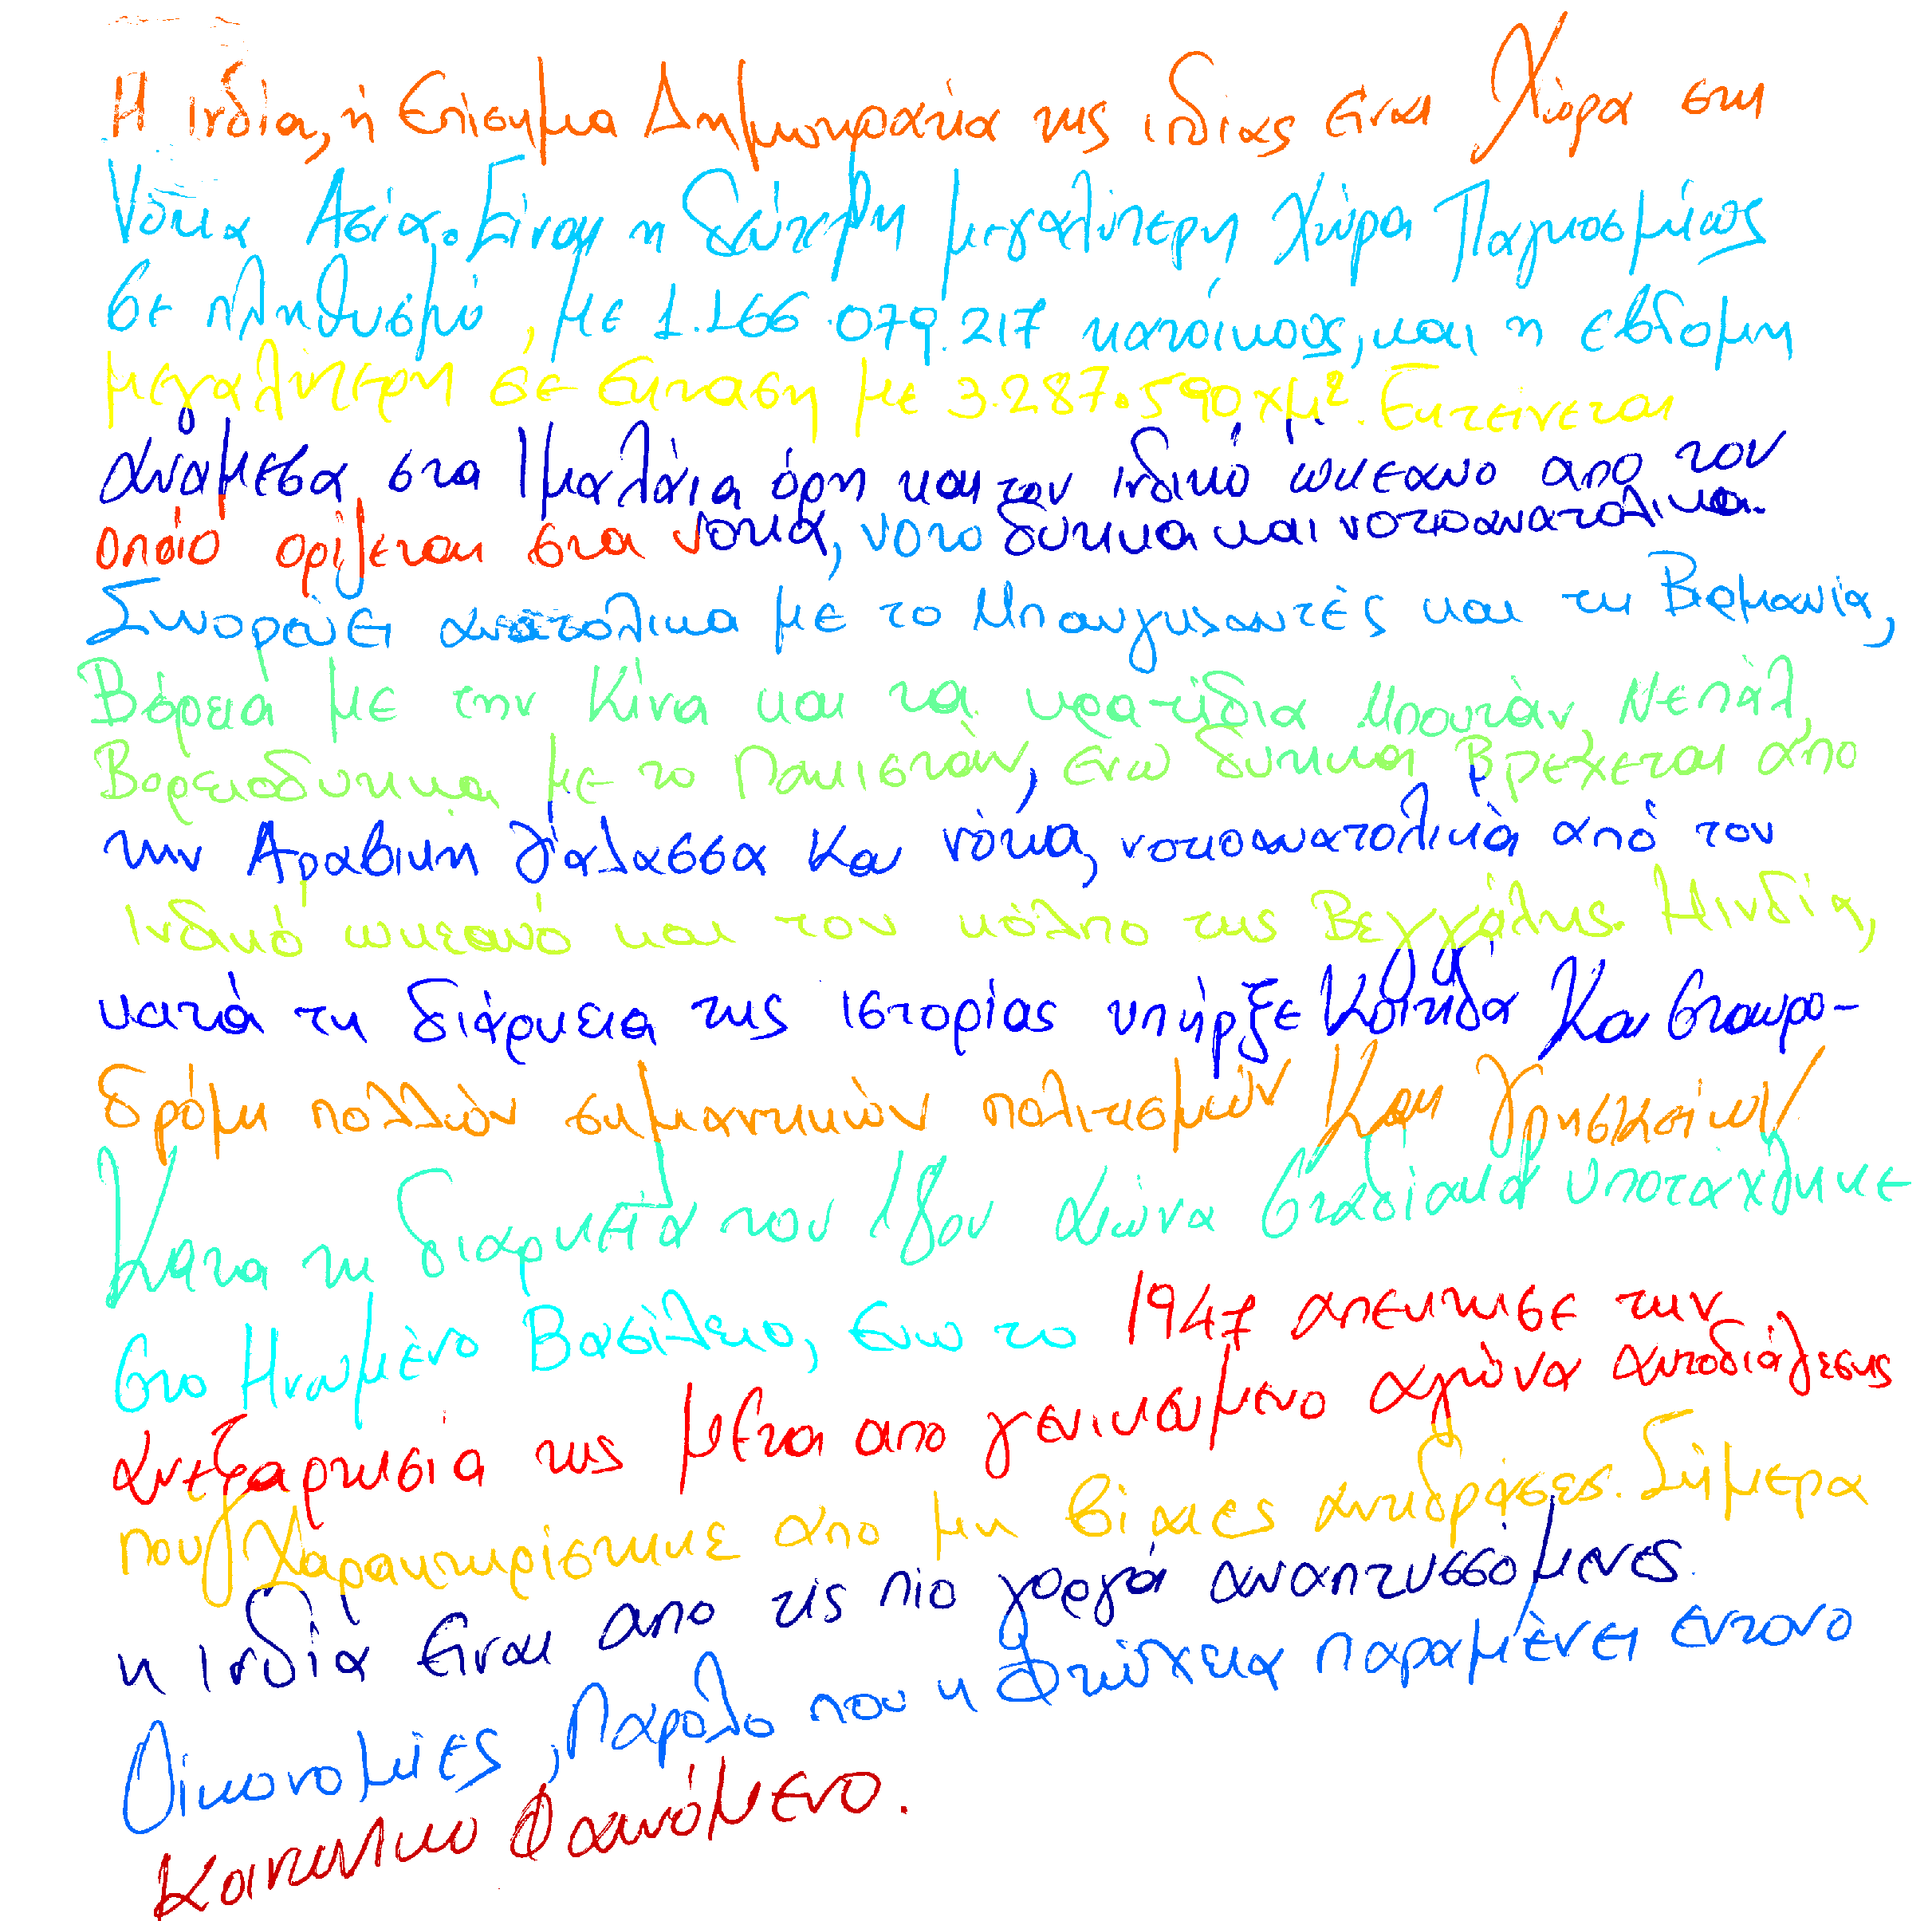 Η Ινδία, ή Επίσημα Δημοκρατία της ινδίας είναι Χώρα στη
Νότια Ασία. Είναι η δεύτερη μεγαλύτερη Χώρα Παγκοσμίως
σε πληθυσμό, με 1.166.079.217 κατοίκους, και η εβδομη
μεγαλύτερη σε έκταση με 3.287.590 χμ². Εκτείνεται
ανάμεσα στα Ιμαλάια όρη και τον ινδικό ωκεανο απο τον
οποίο ορίζεται στα νότια, νοτιοδυτικα και νοτιοανατολικα.
Συνορεύει ανατολικα με το Μπαυγκλαντές και τη Βιρμανία,
Βόρεια με την Κίνα και τα κρατίδια Μπουτάν, Νεπάλ,
Βορειοδυτικα με το Πακιστάν, ενω δυτικα Βρέχεται απο
την Αραβικη θάλασσα και νότια, νοτιοανατολικά από τον
Ινδικό ωκεανό και τον κόλπο της Βεγγάλης. Η ινδία,
κατά τη διάρκεια της ιστορίας υπήρξε Κοιτίδα Και σταυρο-
δρόμι πολλών σημαντικών πολιτισμών Και θρησκειών
Κατα τη διαρκεια του 18ου αιώνα σταδιακά υποτάχθηκε
στο Ηνωμένο Βασίλειο, ενω το 1947 απέκτησε την
ανεξαρτησία της μετα απο γενικευμενο αγώνα αυτοδιάθεσης
που χαρακτηρίστηκε απο μη βίαιες αντιδράσεις. Σήμερα
η Ινδία είναι απο τις πιο γοργά αναπτυσσόμενες
Οικονομίες, Παρόλο που η Φτώχεια παραμένει εντονο
Κοινωνικο Φαινόμενο.